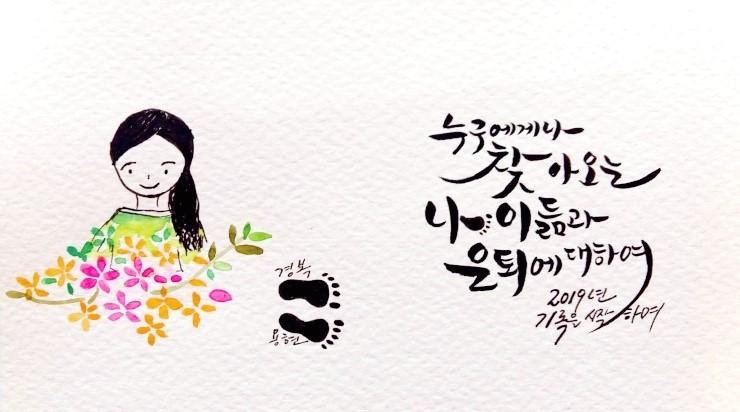 누구에게나
찾아오는
나이듦과
은퇴에 대하여
2019년
기록을 시작하여
경복
용현